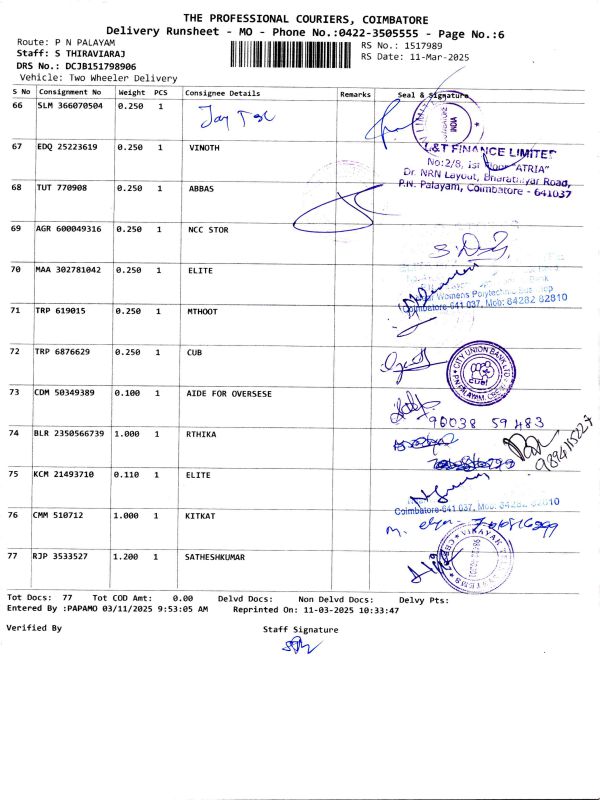 THE PROFESSIONAL COURIERS, COIMBATORE
Delivery Runsheet - MO - Phone No.:0422-3505555 - Page No.:6
Route: P N PALAYAM
Staff: S THIRAVIARAJ
DRS No.: DCJB151798906
Vehicle: Two Wheeler Delivery
RS No.: 1517989
RS Date: 11-Mar-2025
S No Consignment No Weight PCS Consignee Details Remarks Seal & Signature
66 SLM 366070504 0.250 1
67 EDQ 25223619 0.250 1 VINOTH
L&T FINANCE LIMITED
No:2/8, 1st Floor "ATRIA"
Dr. NRN Layout, Bharathiyar Road,
P.N. Palayam, Coimbatore - 641037
68 TUT 770908 0.250 1 ABBAS
69 AGR 600049316 0.250 1 NCC STOR
70 MAA 302781042 0.250 1 ELITE
Womens Polytechnic Bus Stop
Coimbatore-641 037, Mob: 84282 82810
71 TRP 619015 0.250 1 MTHOOT
72 TRP 6876629 0.250 1 CUB
CITY UNION BANK LTD
CUB
73 CDM 50349389 0.100 1 AIDE FOR OVERSESE
90038 59483
74 BLR 2350566739 1.000 1 RTHIKA
75 KCM 21493710 0.110 1 ELITE
Coimbatore-641 037, Mob: 84282 82810
76 CMM 510712 1.000 1 KITKAT
77 RJP 3533527 1.200 1 SATHESHKUMAR
Tot Docs: 77 Tot COD Amt: 0.00 Delvd Docs: Non Delvd Docs: Delvy Pts:
Entered By :PAPAMO 03/11/2025 9:53:05 AM Reprinted On: 11-03-2025 10:33:47
Verified By Staff Signature